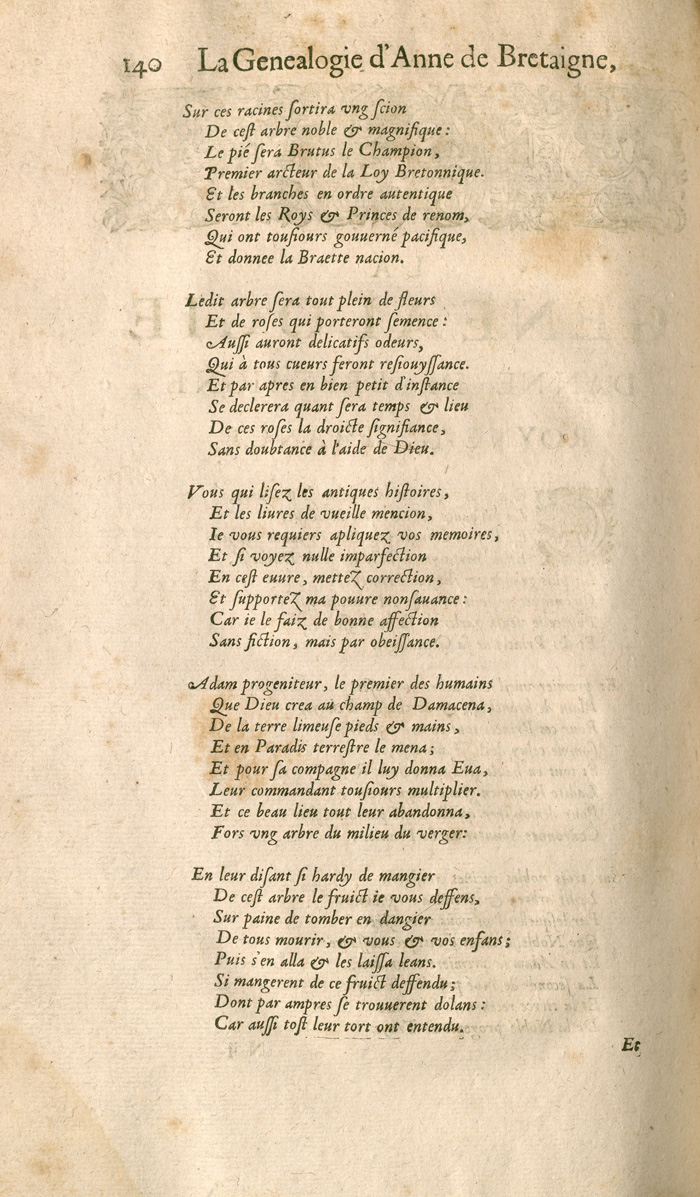 140 La Genealogie d'Anne de Bretaigne,
Sur ces racines ſortira vng ſcion
De ceſt arbre noble & magnifique :
Le pié ſera Brutus le Champion,
Premier arcteur de la Loy Bretonnique.
Et les branches en ordre autentique
Seront les Roys & Princes de renom,
Qui ont touſiours gouuerné pacifique,
Et donnee la Braette nacion.
Ledit arbre ſera tout plein de fleurs
Et de roſes qui porteront ſemence :
Auſſi auront delicatifs odeurs,
Qui à tous cueurs feront reſiouyſſance.
Et par apres en bien petit d'inſtance
Se declerera quant ſera temps & lieu
De ces roſes la droicte ſignifiance,
Sans doubtance à l'aide de Dieu.
Vous qui liſez les antiques hiſtoires,
Et les liures de vueille mencion,
Ie vous requiers apliquez vos memoires,
Et ſi voyez nulle imparfection
En ceſt euure, mettez correction,
Et ſupportez ma pouure nonſauance :
Car ie le faiz de bonne affection
Sans fiction, mais par obeiſſance.
Adam progeniteur, le premier des humains
Que Dieu crea au champ de Damacena,
De la terre limeuſe pieds & mains,
Et en Paradis terreſtre le mena ;
Et pour ſa compagne il luy donna Eua,
Leur commandant touſiours multiplier.
Et ce beau lieu tout leur abandonna,
Fors vng arbre du milieu du verger:
En leur diſant ſi hardy de mangier
De ceſt arbre le fruict ie vous deffens,
Sur paine de tomber en dangier
De tous mourir, & vous & vos enfans ;
Puis s'en alla & les laiſſa leans.
Si mangerent de ce fruict deffendu ;
Dont par ampres ſe trouuerent dolans :
Car auſſi toſt leur tort ont entendu.
Et